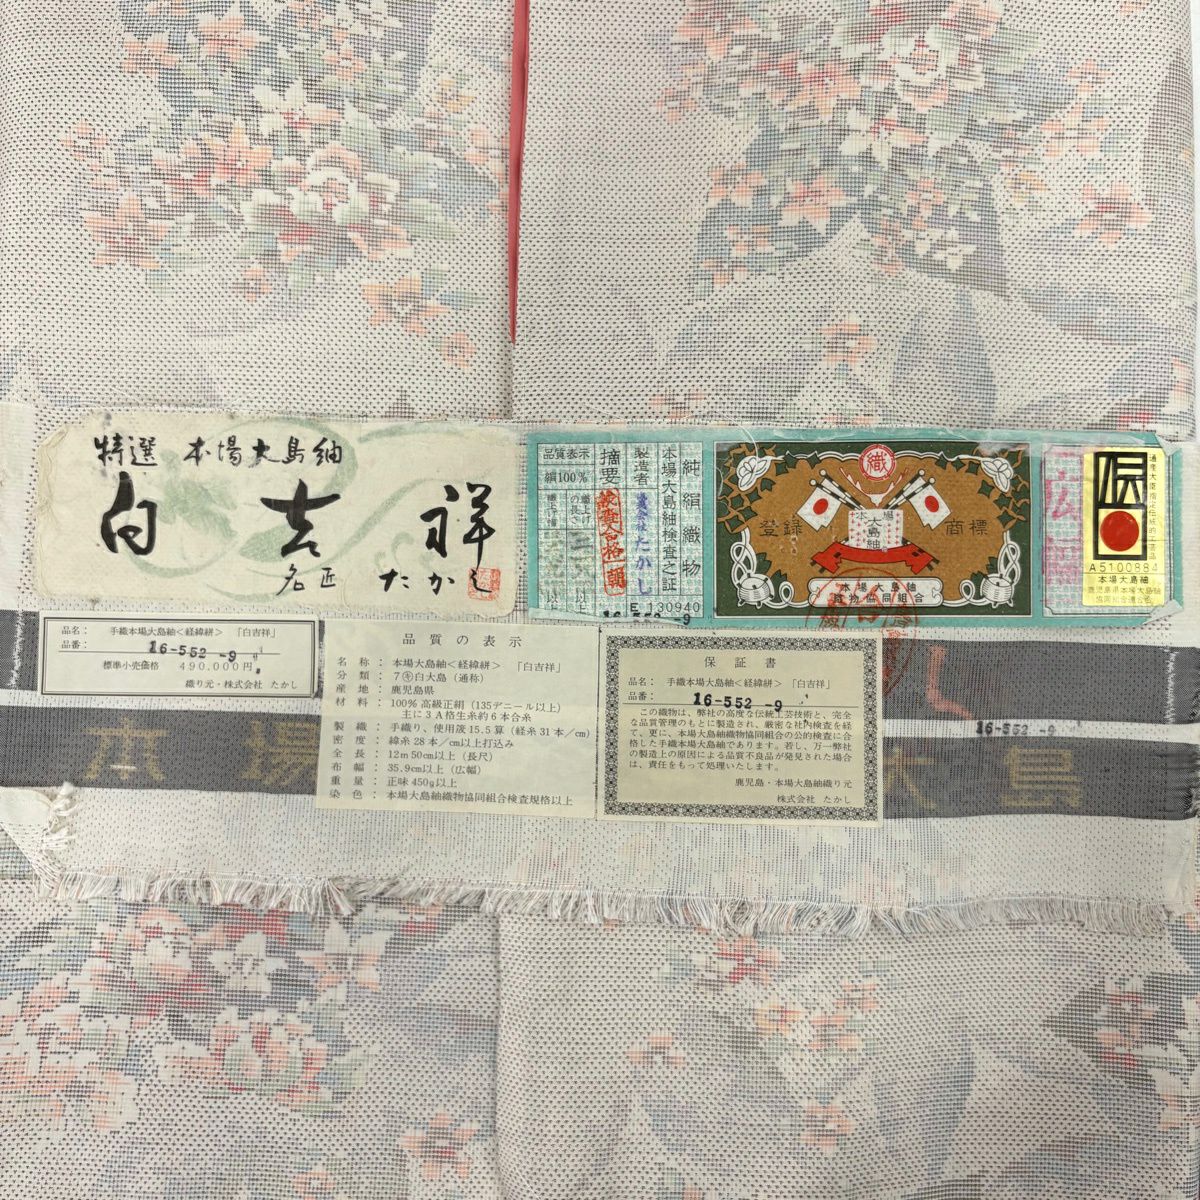 特選 本場大島紬
白吉祥
名匠 たかし
品質表示
絹100%
摘要
製造者
本場大島紬検査之証
純絹織物
E 130940
16-552 -9
織
登録
商標
本場
大島
紬
本場大島紬
織物協同組合
広
通産大臣指定伝統的工芸品
A5100884
本場大島紬
鹿児島県本場大島紬
協同組合連合会
品名： 手織本場大島紬<経緯絣> 「白吉祥」
品番： 16-552 -9
標準小売価格 490,000円
織り元・株式会社 たかし
品質の表示
名 称： 本場大島紬<経緯絣> 「白吉祥」
分 類： 7㋲白大島（通称）
産 地： 鹿児島県
材 料： 100％ 高級正絹（135デニール以上）
主に3A格生糸約6本合糸
製 織： 手織り、使用筬15.5算（経糸31本／cm）
密 度： 緯糸28本／cm以上打込み
全 長： 12m50cm以上（長尺）
布 幅： 35.9cm以上（広幅）
重 量： 正味450g以上
染 色： 本場大島紬織物協同組合検査規格以上
保証書
品名： 手織本場大島紬<経緯絣> 「白吉祥」
品番： 16-552 -9
この織物は、弊社の高度な伝統工芸技術と、完全
な品質管理のもとに製造され、厳密な社内検査を経
て、更に、本場大島紬織物協同組合の公的検査に合
格した手織本場大島紬であります。若し、万一弊社
の製造上の原因による品質不良品が発見された場合
は、責任をもって処理いたします。
鹿児島・本場大島紬織り元
株式会社 たかし
16-552 -9
本場大島